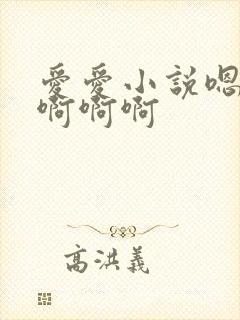 愛愛小說嗯
啊啊啊啊
高洪義